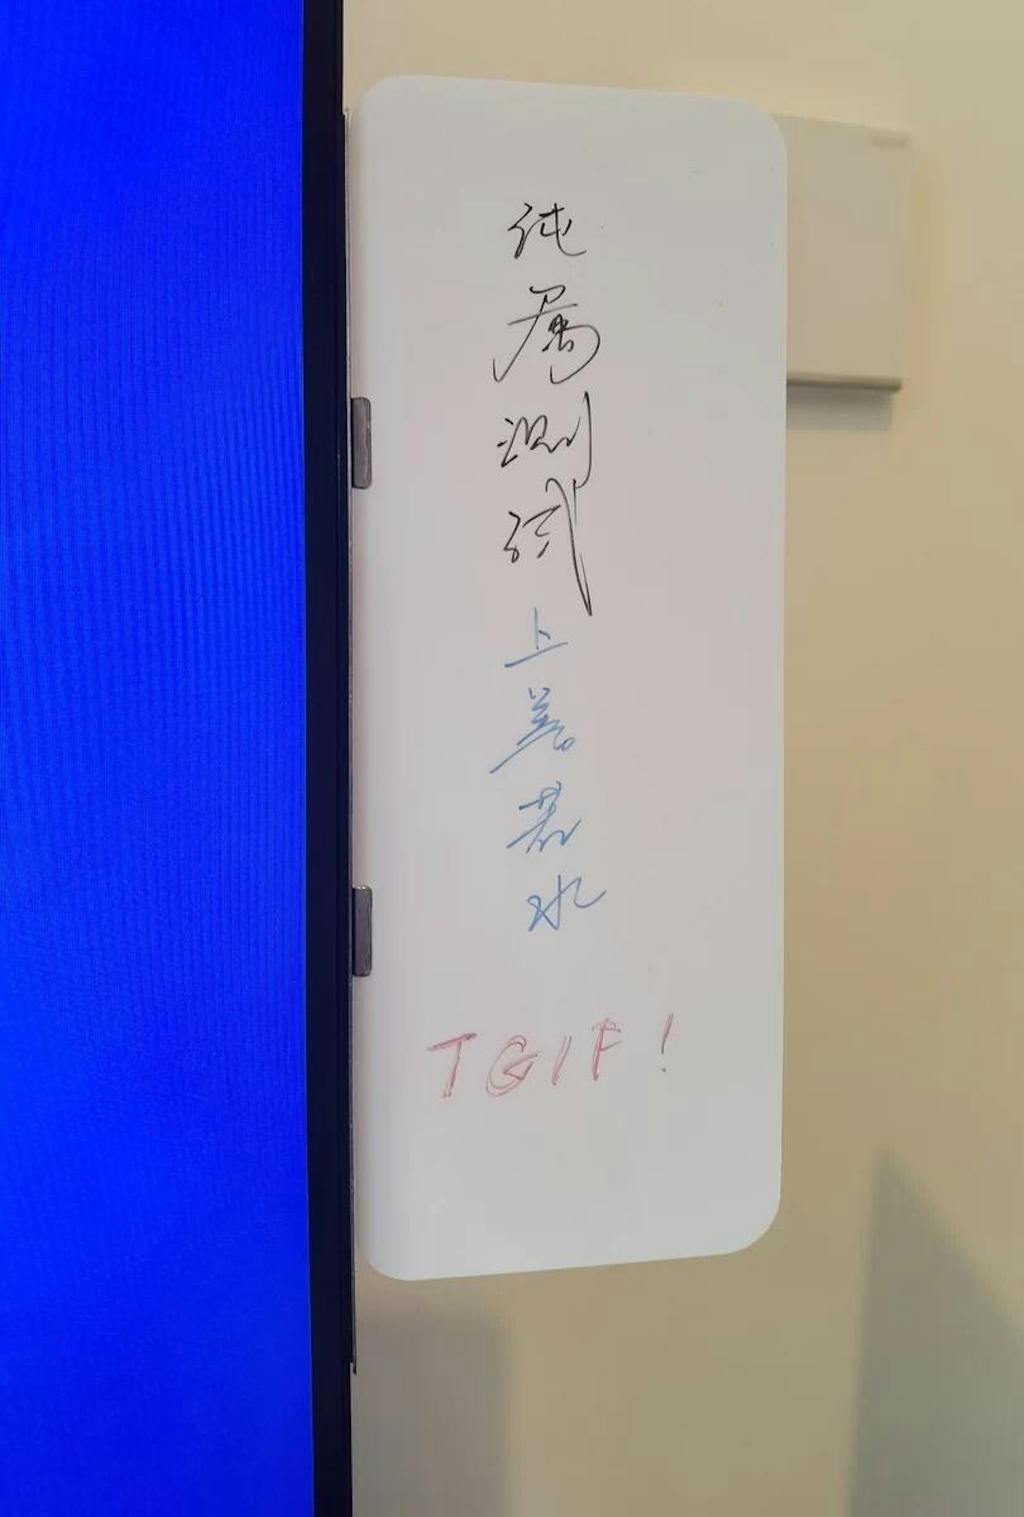 纯属测试
上善若水
TGIF!